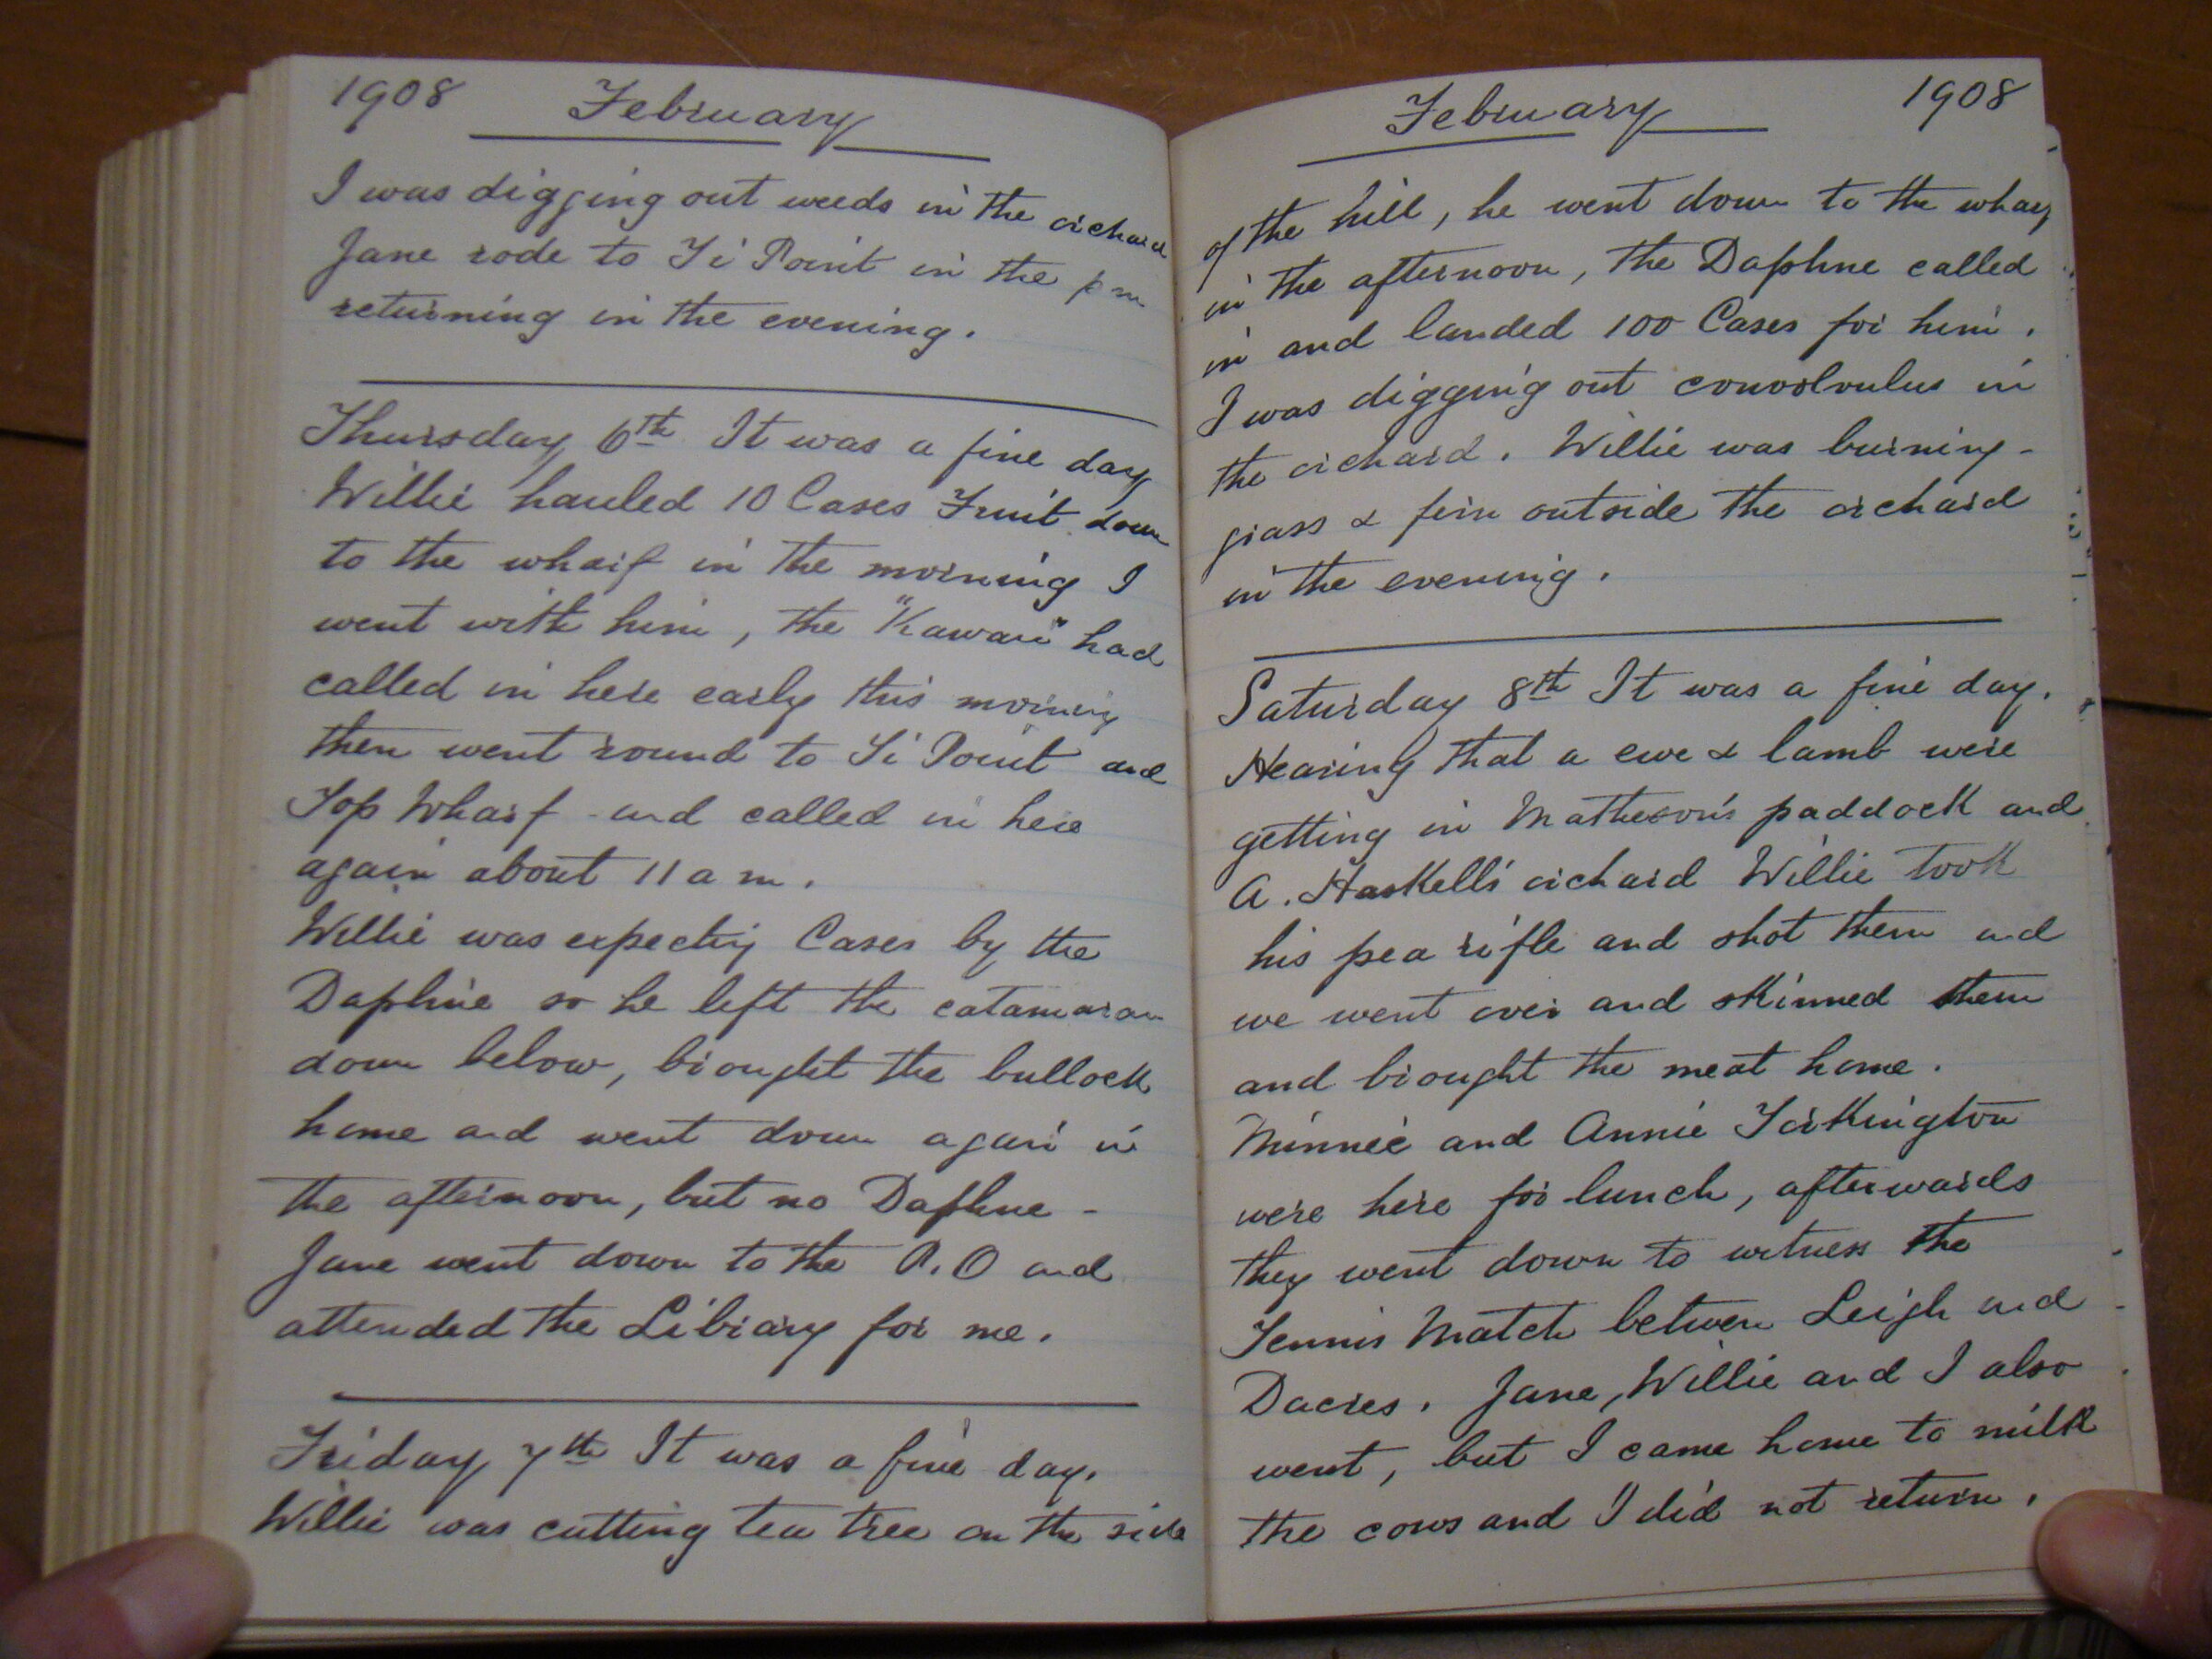 1908 February
I was digging out weeds in the orchard
Jane rode to Ti Point in the pm
returning in the evening.
Thursday 6th It was a fine day
Willie hauled 10 Cases Fruit down
to the wharf in the morning I
went with him, the "Kawau" had
called in here early this morning
then went round to Ti Point and
Top Wharf and called in here
again about 11 a m.
Willie was expecting Cases by the
Daphne so he left the catamaran
down below, brought the bullock
home and went down again in
the afternoon, but no Daphne -
Jane went down to the P.O and
attended the Library for me.
Friday 7th It was a fine day.
Willie was cutting tea tree on the side
February 1908
of the hill, he went down to the wharf
in the afternoon, the Daphne called
in and landed 100 Cases for him.
I was digging out convolvulus in
the orchard. Willie was burning -
grass & fern outside the orchard
in the evening.
Saturday 8th It was a fine day.
Hearing that a ewe & lamb were
getting in Matheson's paddock and
A. Haskell's orchard Willie took
his pea rifle and shot them and
we went over and skinned them
and brought the meat home.
Minnie and Annie Torkington
were here for lunch, afterwards
they went down to witness the
Tennis Match between Leigh and
Dacres. Jane, Willie and I also
went, but I came home to milk
the cows and I did not return.